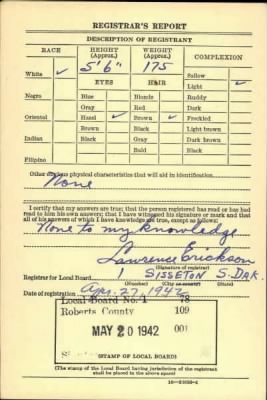 REGISTRAR'S REPORT
DESCRIPTION OF REGISTRANT
RACE HEIGHT (Approx.) WEIGHT (Approx.) COMPLEXION
5' 6" 175 Sallow
White ✓ EYES HAIR Light ✓
Negro Blue Blonde Ruddy
Gray Red Dark
Oriental Hazel ✓ Brown ✓ Freckled
Brown Black Light brown
Indian Black Gray Dark brown
Bald Black
Filipino
Other obvious physical characteristics that will aid in identification
None
I certify that my answers are true; that the person registered has read or has had
read to him his own answers; that I have witnessed his signature or mark and that
all of his answers of which I have knowledge are true, except as follows:
None to my knowledge
Lawrence Erickson
(Signature of registrar)
Registrar for Local Board 1 SISSETON S. DAK.
(Number) (City or county) (State)
Date of registration Apr. 27, 1942
Local Board No. 1 78
Roberts County 109
MAY 20 1942 001
(STAMP OF LOCAL BOARD)
(The stamp of the Local Board having jurisdiction of the registrant
shall be placed in the above space)